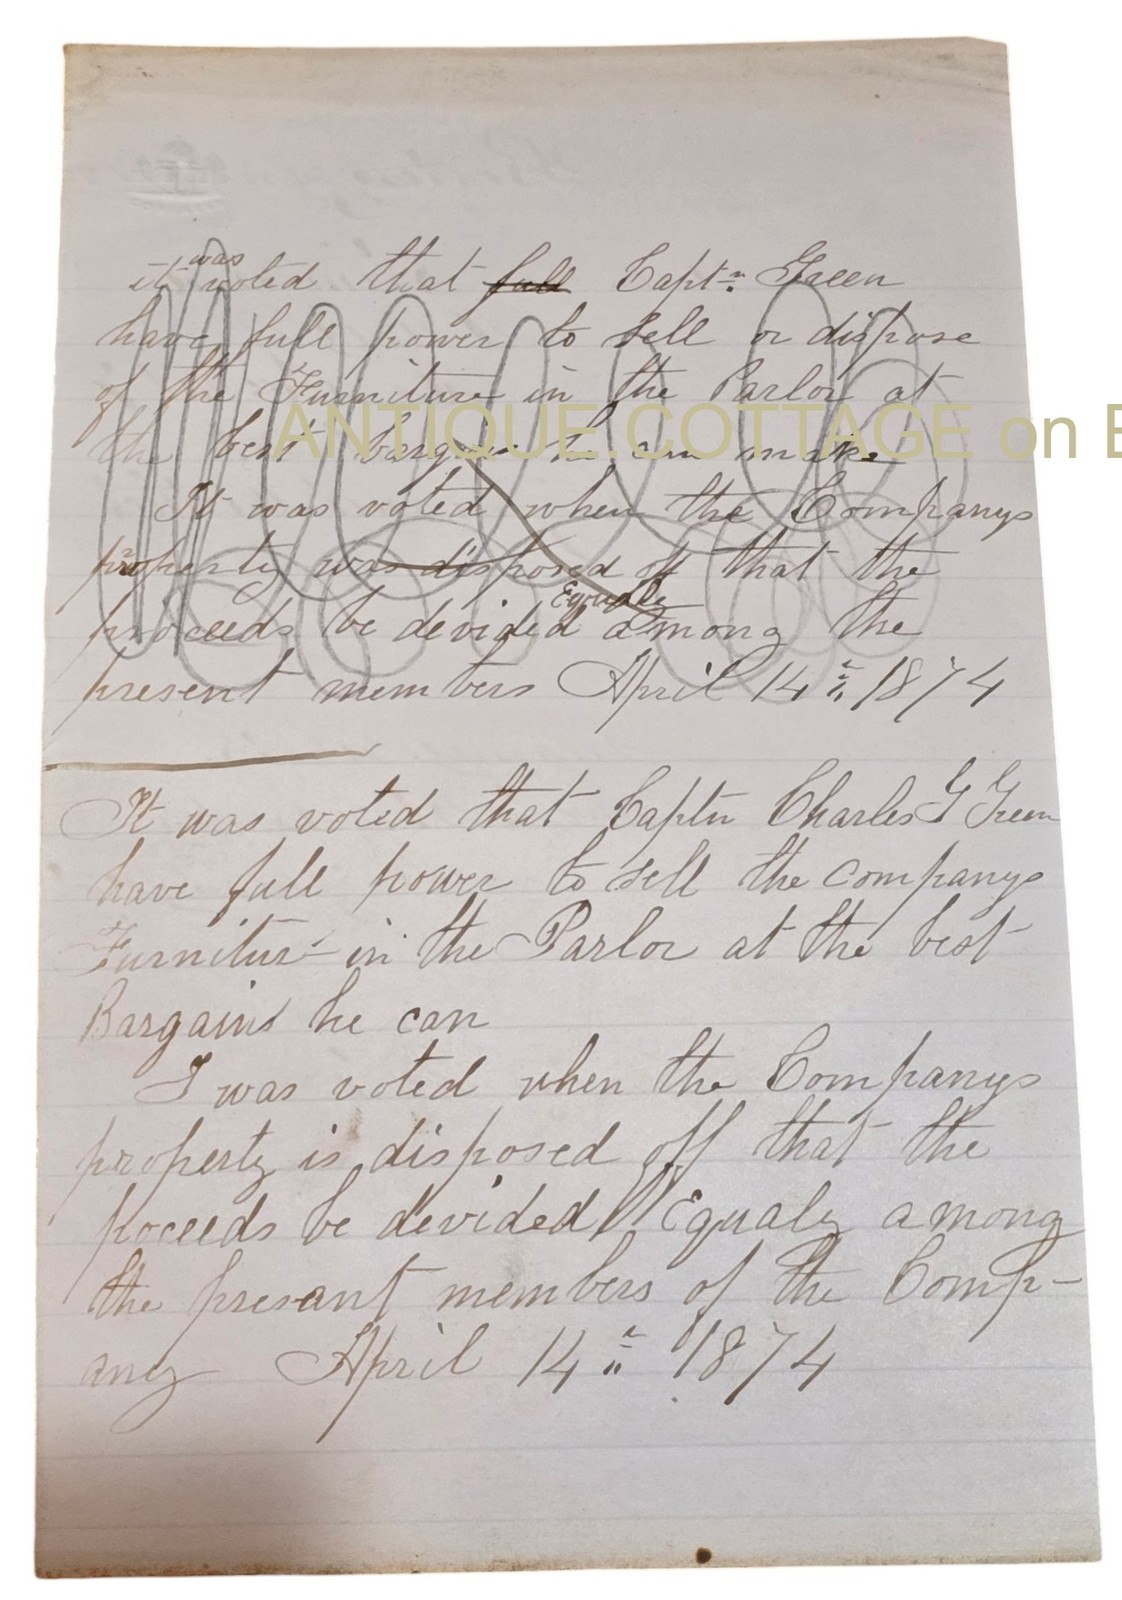 it was voted that full Captn Green
have full power to sell or dispose
of the Furniture in the Parlor at
the best bargain he can make
It was voted when the Companys
property was disposed off that the
proceeds be devided Equaly among the
present members April 14th 1874
It was voted that Captn Charles G Green
have full power to sell the companys
Furniture in the Parlor at the best
Bargains he can
I was voted when the Companys
property is disposed off that the
poceeds be devided Equaly among
the presant members of the Comp-
any April 14th 1874
ANTIQUE.COTTAGE on E